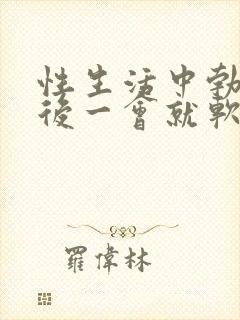 性生活中勃
後一會就軟
羅偉林